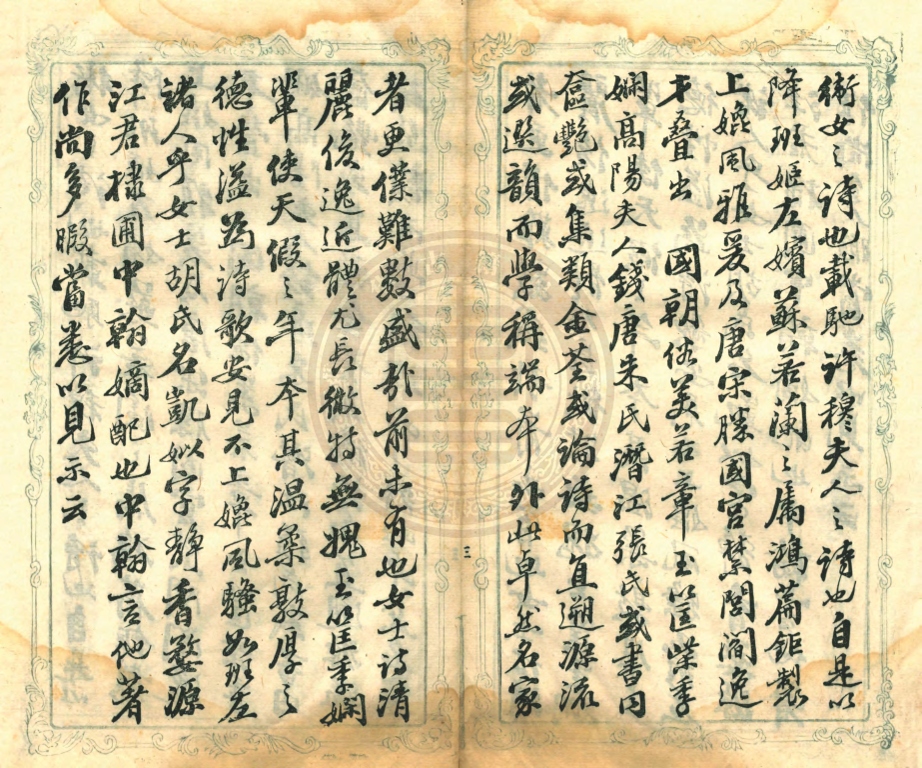 衛女之詩也載馳許穆夫人之詩也自是以
降班姬左嬪蘇若蘭之屬鴻篇鉅製
上媲風雅爰及唐宋勝國宮禁閨閤逸
才疊出　國朝俊美若章玉筐柴季
嫻高陽夫人錢唐朱氏潛江張氏或書因
奩艷或集類金荃或論詩而直遡源流
或選韻而學稱端本外此卓然名家
三
者更僕難數盛哉前未有也女士詩清
麗俊逸近體尤長微特無媿玉筐季嫻
輩使天假之年本其溫柔敦厚之
德性溢為詩歌安見不上媲風騷如班左
諸人乎女士胡氏名凱姒字靜香婺源
江君棣圃中翰嫡配也中翰言他著
作尚多暇當悉以見示云